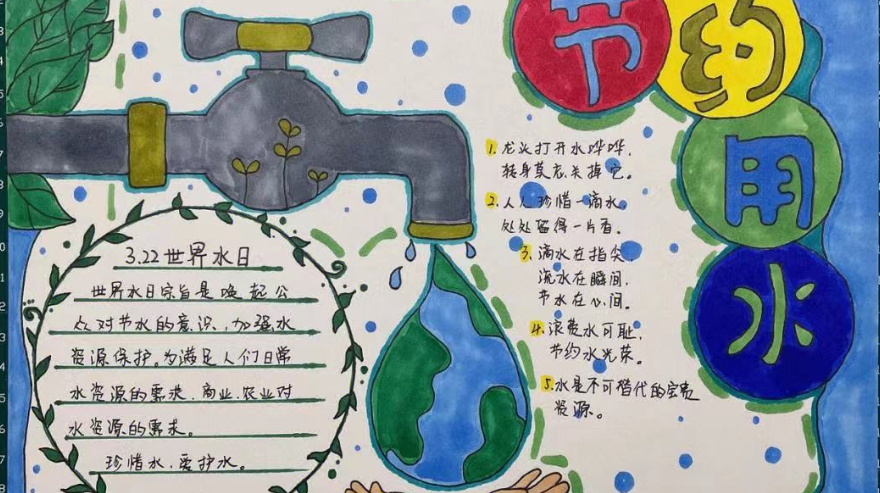 节约用水
3.22世界水日
世界水日宗旨是唤起公
众对节水的意识，加强水
资源保护。为满足人们日常
水资源的需求、商业、农业对
水资源的需求。
珍惜水，爱护水。
1. 龙头打开水哗哗，
转身莫忘关掉它。
2. 人人珍惜一滴水，
处处留得一片春。
3. 滴水在指尖，
流水在瞬间，
节水在心间。
4. 浪费水可耻，
节约水光荣。
5. 水是不可替代的宝贵
资源。